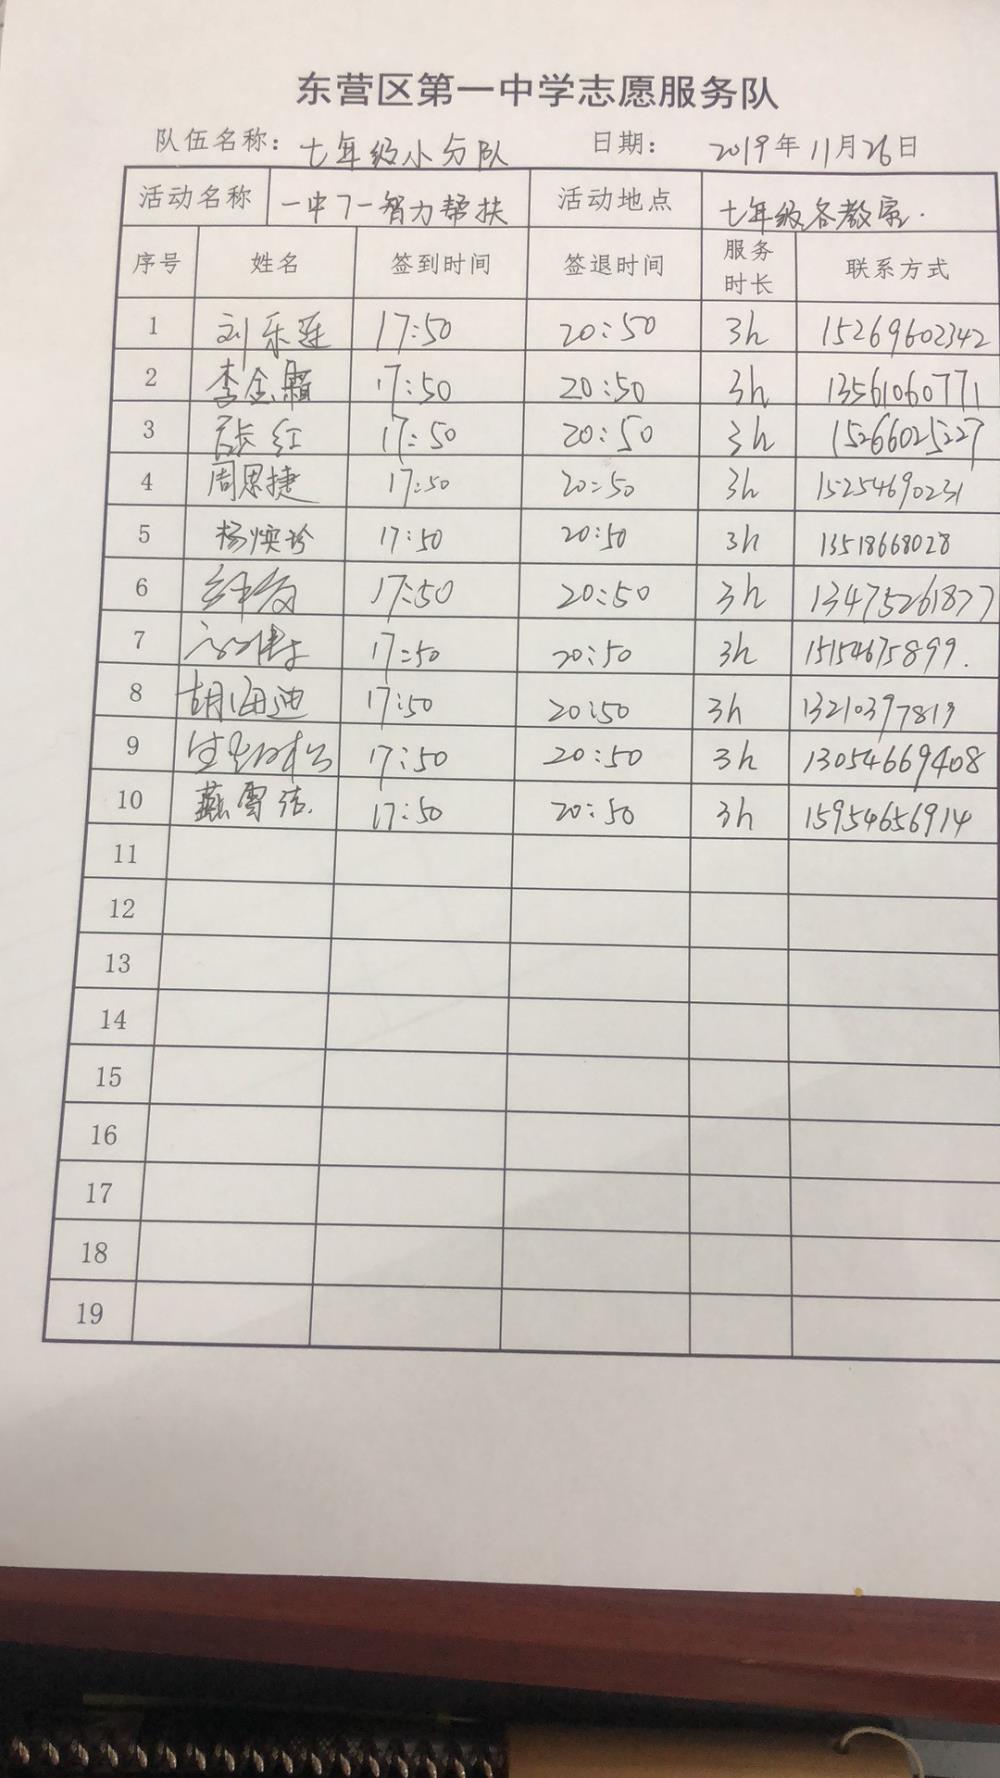 东营区第一中学志愿服务队
队伍名称: 七年级小分队 日期: 2019年11月26日
活动名称 一中7一智力帮扶 活动地点 七年级各教室.
序号 姓名 签到时间 签退时间 服务时长 联系方式
1 刘乐莲 17:50 20:50 3h 15269602342
2 李金霜 17:50 20:50 3h 13561060771
3 张红 17:50 20:50 3h 15266025227
4 周思捷 17:50 20:50 3h 15254690231
5 杨焕珍 17:50 20:50 3h 13518668028
6 17:50 20:50 3h 13475261877
7 17:50 20:50 3h 15154675899.
8 胡海迪 17:50 20:50 3h 13210397819
9 17:50 20:50 3h 13054669408
10 燕雪洁. 17:50 20:50 3h 15954656914
11
12
13
14
15
16
17
18
19